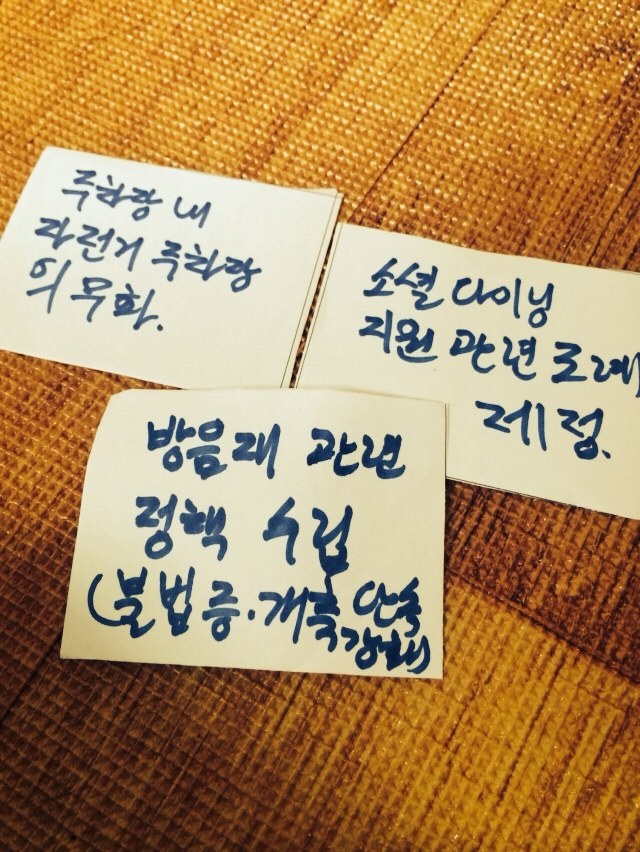 주차장 내
자전거 주차장
의무화.
소셜 다이닝
지원 관련 조례
제정.
방음재 관련
정책 수립
(불법 증·개축 단속
강화)